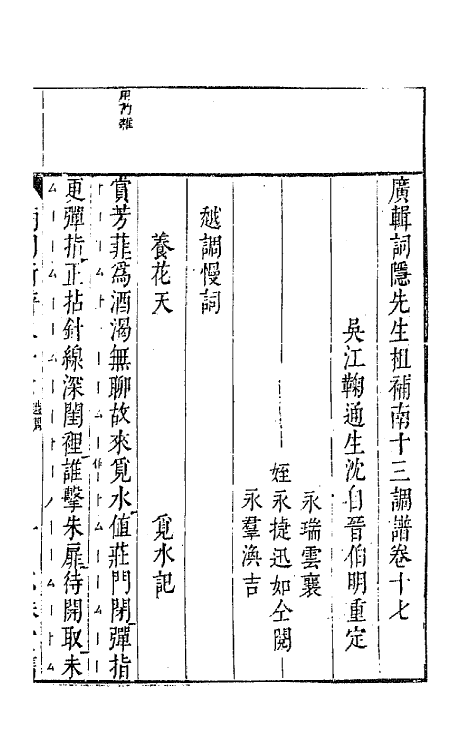 廣輯詞隱先生增補南十三調譜卷十七
吳江鞠通生沈自晉伯明重定
永瑞雲襄
姪永捷迅如仝閱
永羣渙吉
越調慢詞
養花天 覓水記
賞芳菲爲酒渴無聊故來覓水值莊門閉彈指
更彈指正拈針線深閨裡誰擊朱扉待開取未
用韵雜